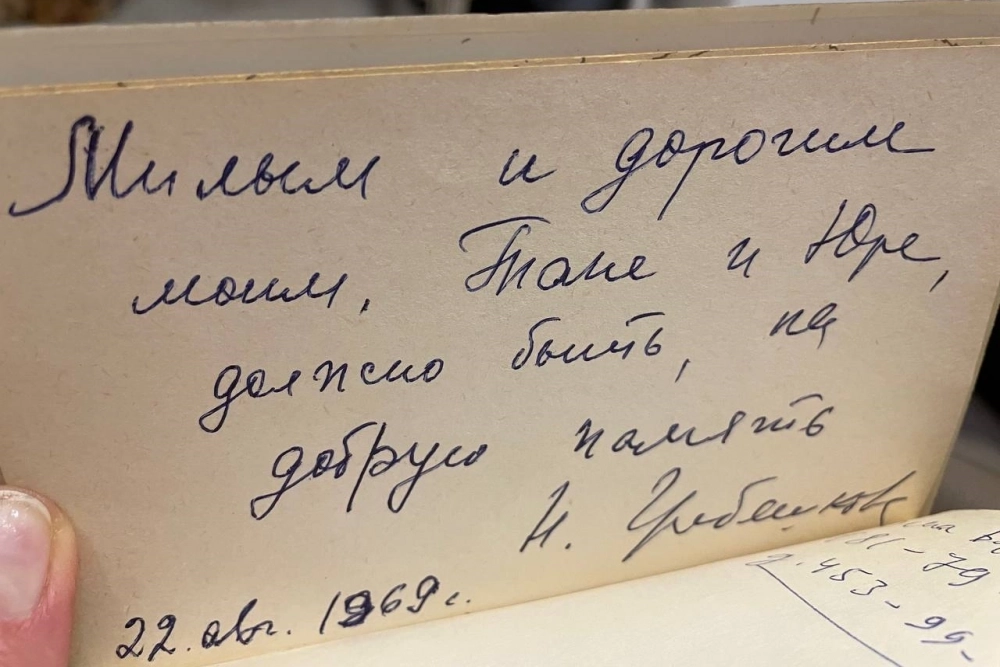 Милым и дорогим
моим, Тане и Юре,
должно быть, на
добрую память
Н. Гребенников
22. авг. 1969 г.
81-79
2.453-99-